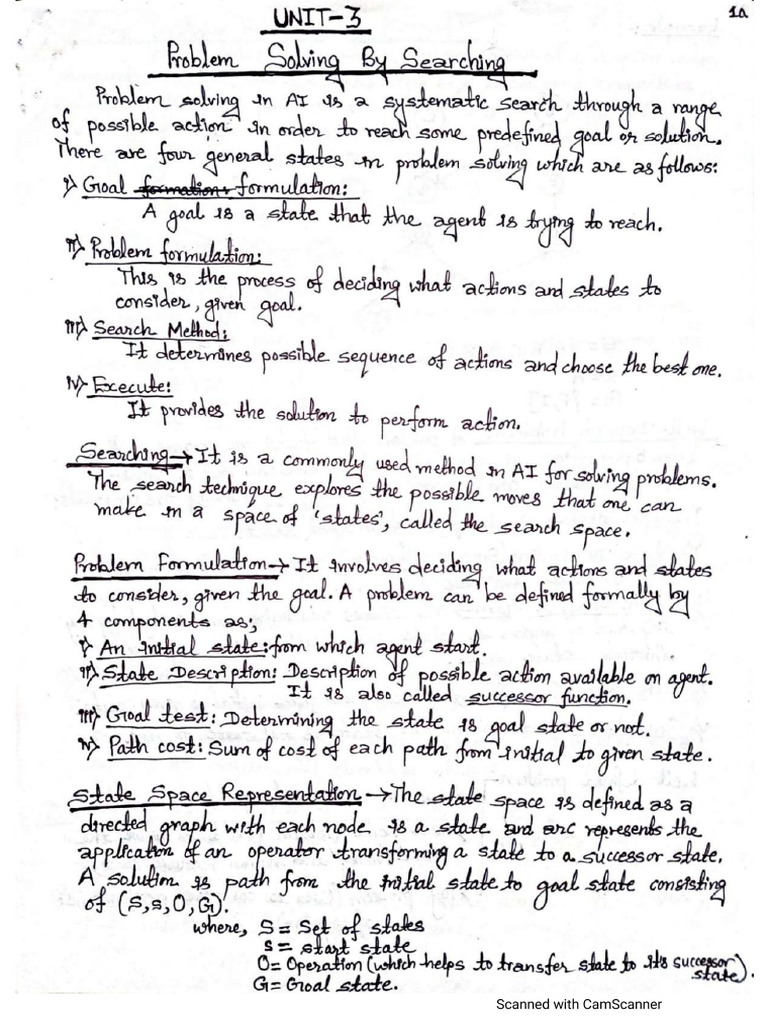 UNIT-3
1a
Problem Solving By Searching
Problem solving in AI is a systematic search through a range
of possible action in order to reach some predefined goal or solution.
There are four general states in problem solving which are as follows:
i) Goal formation formulation:
A goal is a state that the agent is trying to reach.
ii) Problem formulation:
This is the process of deciding what actions and states to
consider, given goal.
iii) Search Method:
It determines possible sequence of actions and choose the best one.
iv) Execute:
It provides the solution to perform action.
Searching→ It is a commonly used method in AI for solving problems.
The search technique explores the possible moves that one can
make in a space of 'states', called the search space.
Problem Formulation→ It involves deciding what actions and states
to consider, given the goal. A problem can be defined formally by
4 components as;
i) An initial state: from which agent start.
ii) State Description: Description of possible action available on agent.
It is also called successor function.
iii) Goal test: Determining the state is goal state or not.
iv) Path cost: Sum of cost of each path from initial to given state.
State Space Representation → The state space is defined as a
directed graph with each node is a state and arc represents the
application of an operator transforming a state to a successor state.
A solution is path from the initial state to goal state consisting
of (S, s, O, G).
where, S = Set of states
s = start state
O = Operation (which helps to transfer state to it's successor
state).
G = Goal state.
Scanned with CamScanner